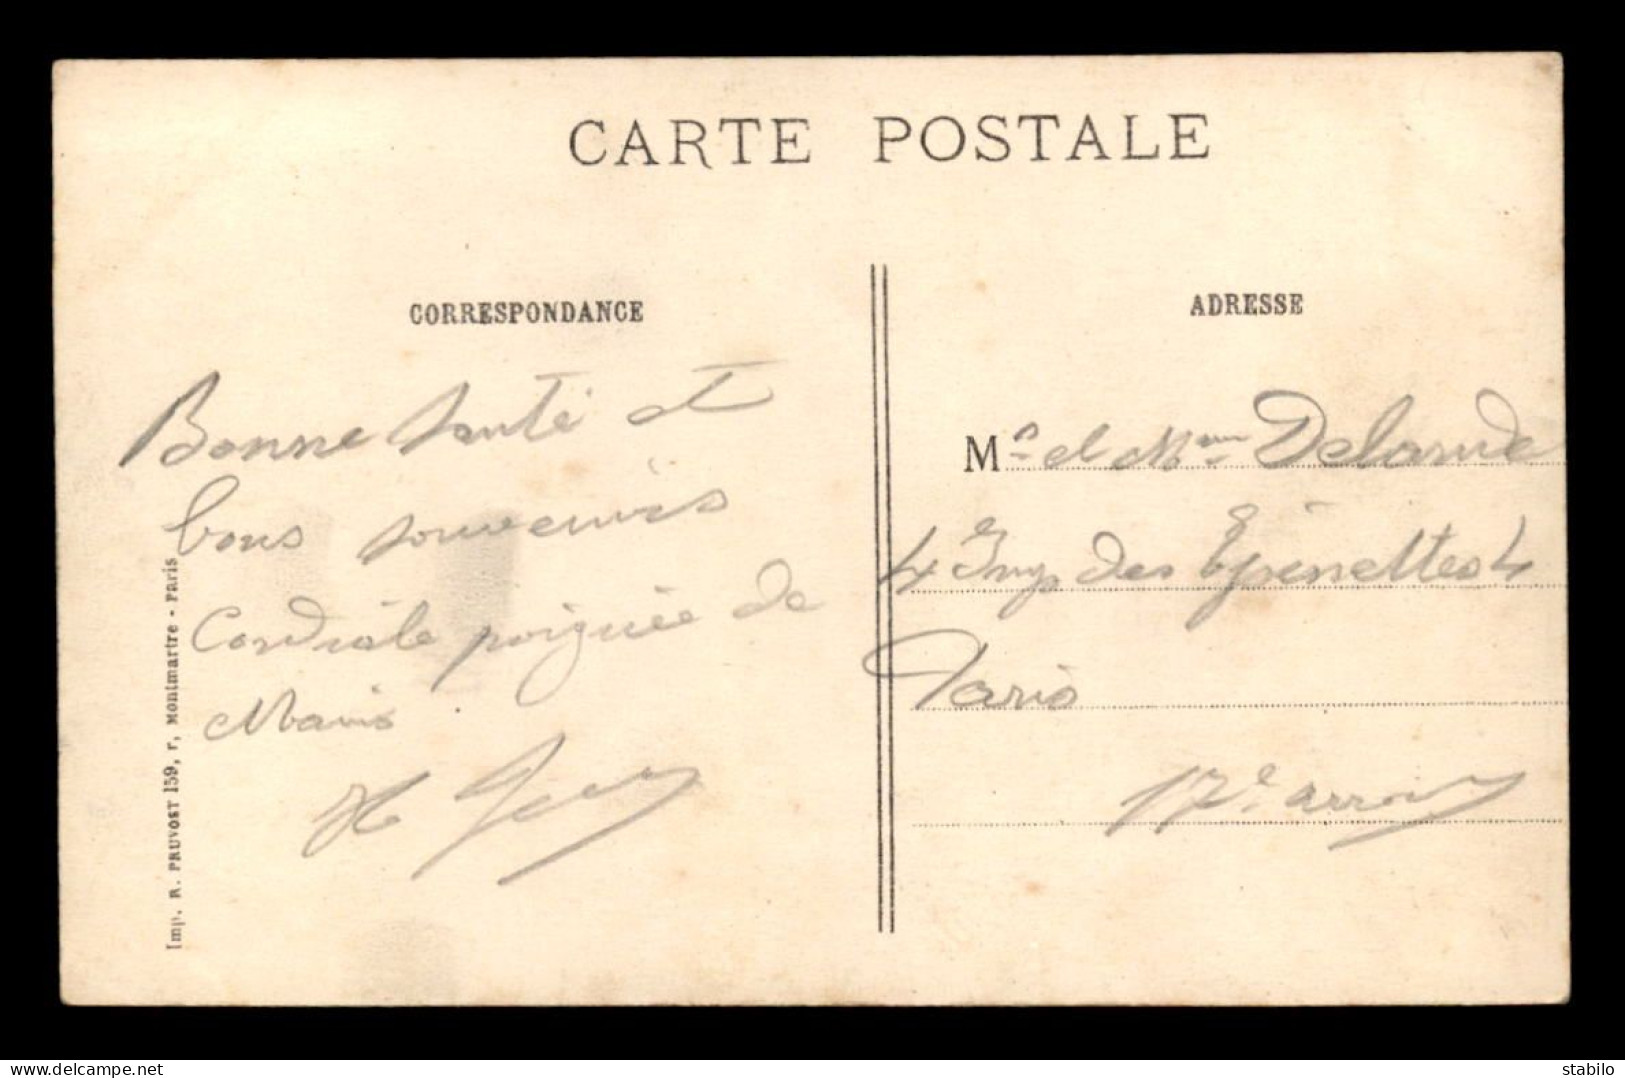 CARTE POSTALE
CORRESPONDANCE
Bonne santé et
bons souvenirs
Cordiale poignée de
Mains
ADRESSE
Mr et Mme Delarue
4 Imp des Epinettes 4
Paris
17e arron
Imp. R. PRUVOST 159, r, Montmartre - Paris
www.delcampe.net
stabilo